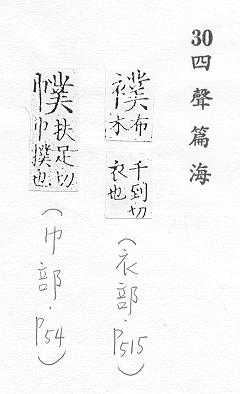 30四聲篇海
襆布木
千到切
衣也
(衣部.P515)
幞扶足切
巾撲也
(巾部.P54)